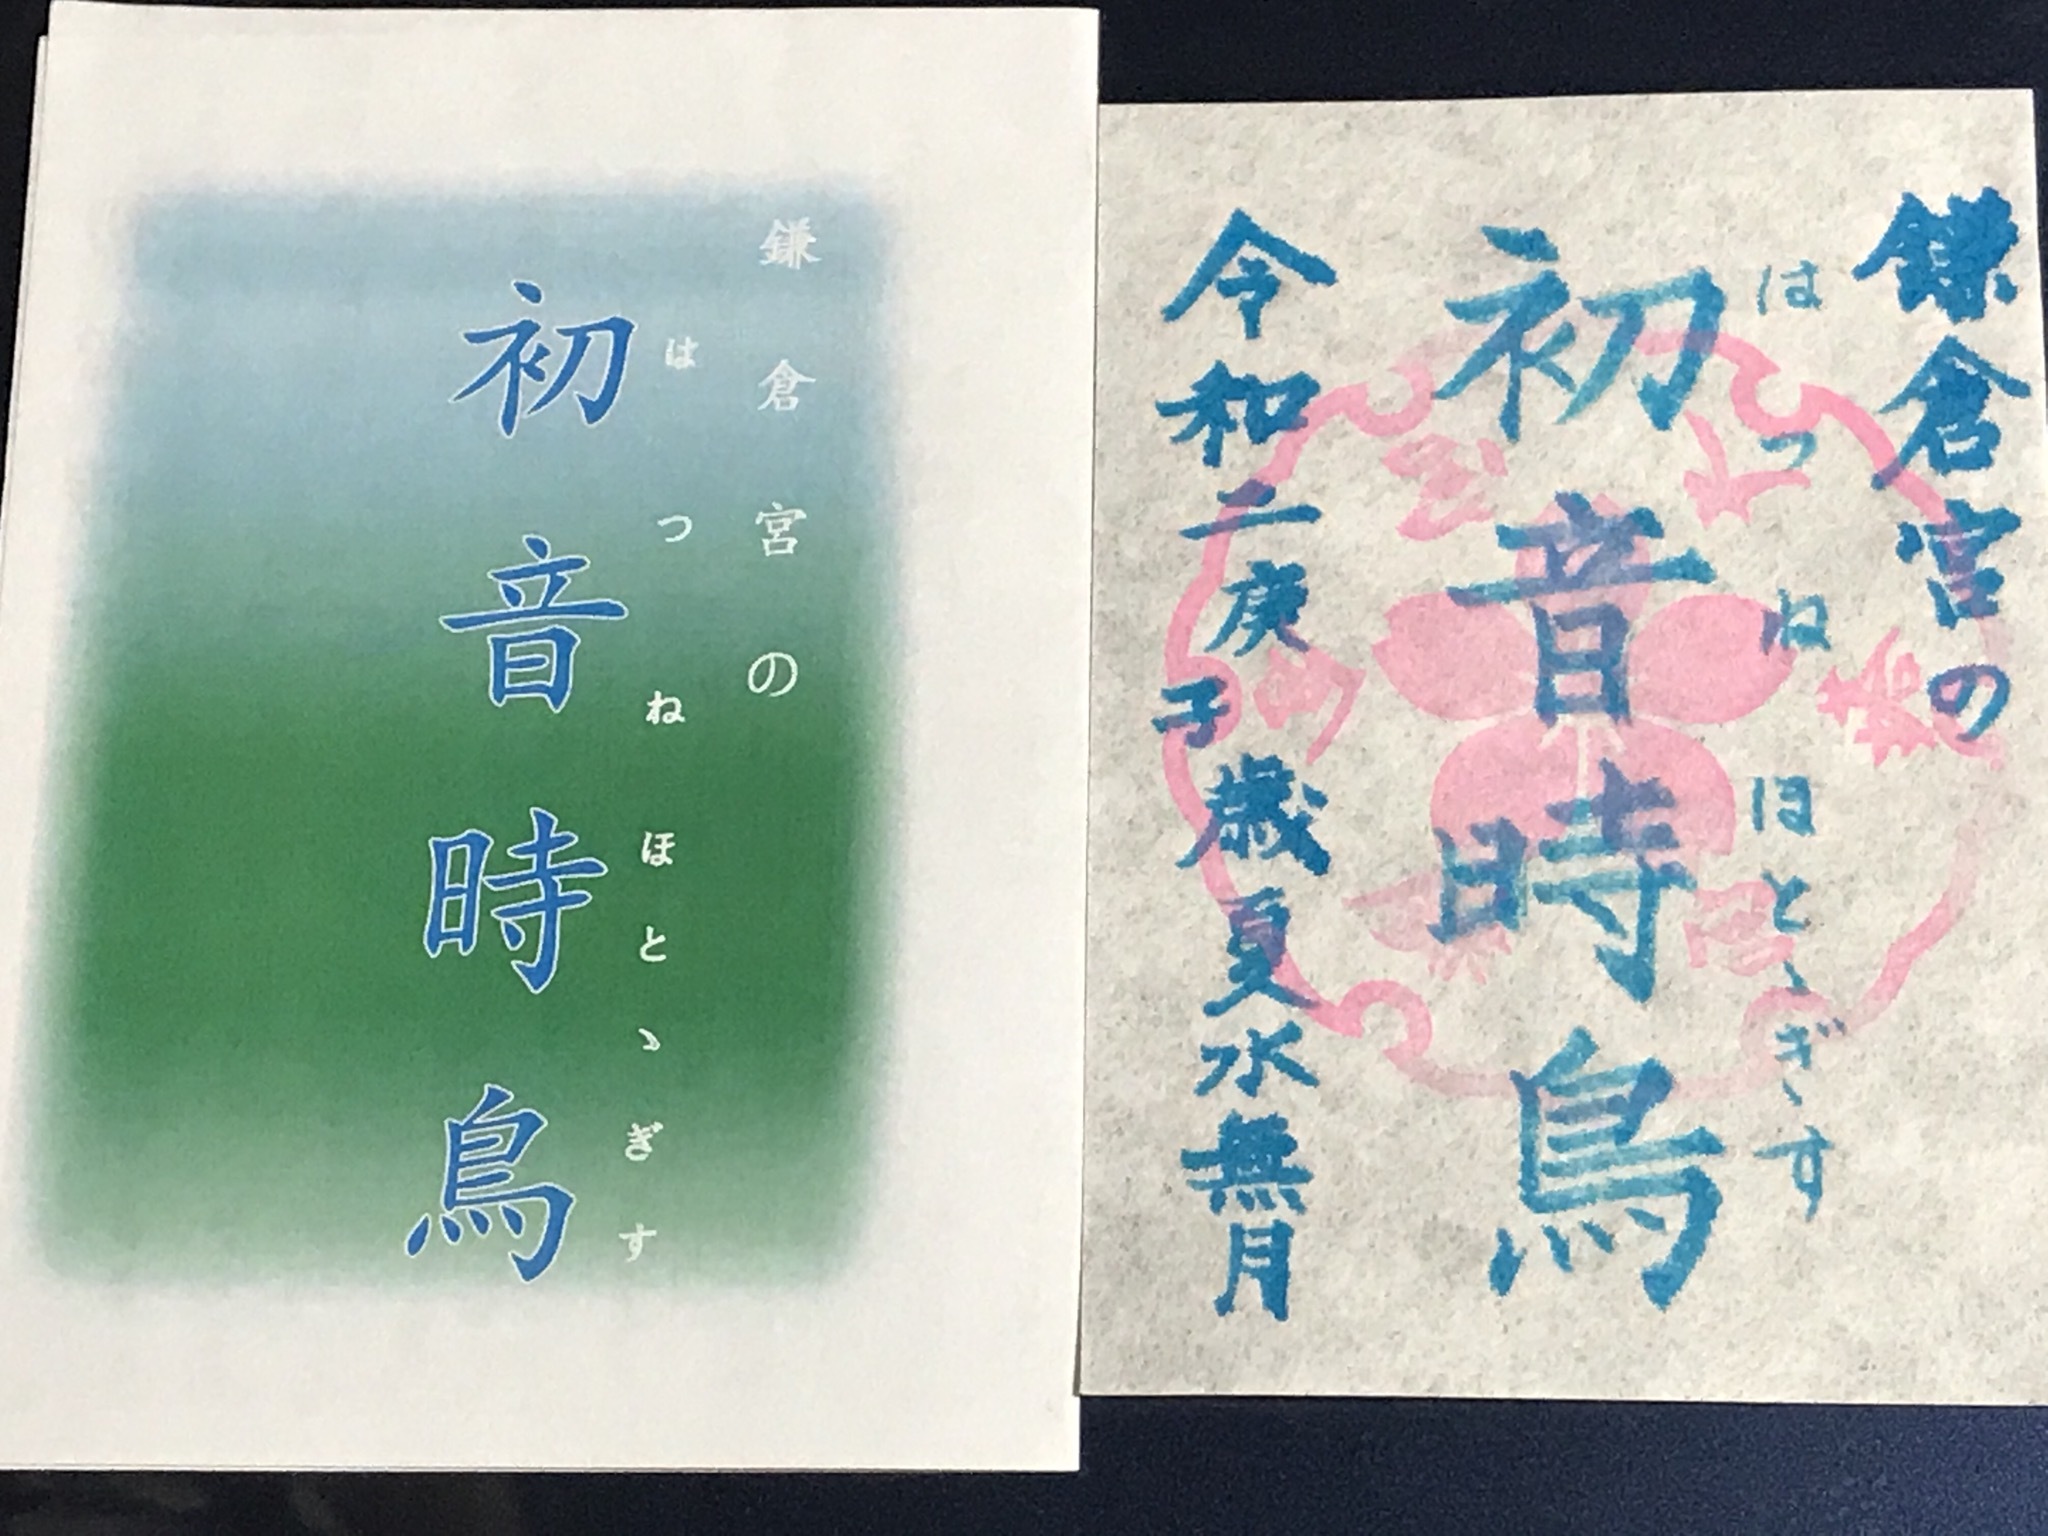 鎌倉宮の
初音時鳥
はつねほとゝぎす
鎌倉宮の
初音時鳥
はつねほとゝぎす
令和二庚子歳夏水無月